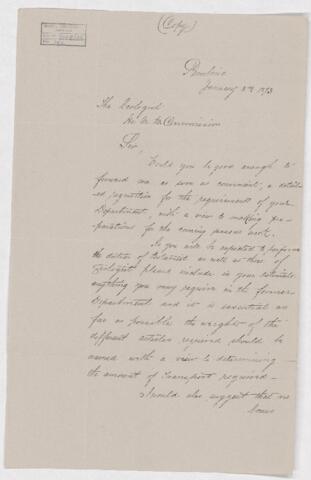 (Copy)
Pembina
January 8th 1873
The Geologist
H. M. N. A. B. Commission
Sir,
Would you be good enough to
forward me as soon as convenient, a detail-
ed requisition for the requirements of your
Department, with a view to making pre-
parations for the coming seasons work.
As you will be expected to perform
the duties of Botanist as well as those of
Geologist please include in your estimate
anything you may require in the former
Department and it is essential as
far as possible the weights of the
different articles required should be
named with a view to determining
the amount of transport required—
I would also suggest that no